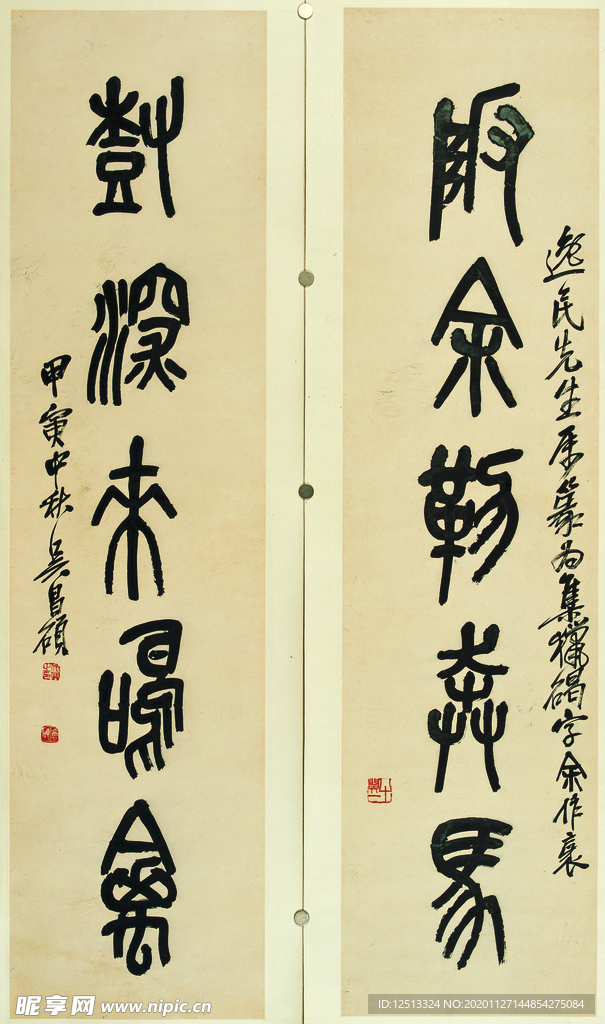 逸民先生屬篆為集獵碣字余作衺
阪余勒奔馬
樹深來鳴禽
甲寅中秋吳昌碩
昵享网 www.nipic.cn
ID:12513324 NO:20201127144854275084